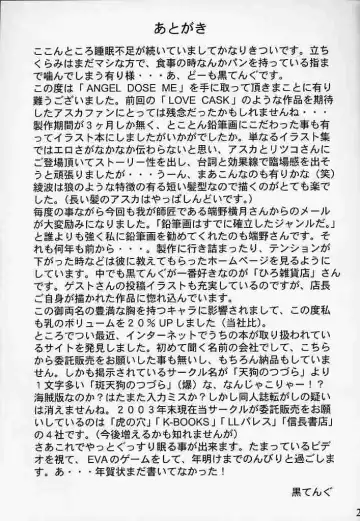 あとがき
ここんところ睡眠不足が続いていましてかなりきついです。立ち
くらみはまだマシな方で、食事の時なんかパンを持っている指ま
で噛んでしまう有り様・・・あ、どーも黒てんぐです。
この度は「ANGEL DOSE ME」を手に取って頂きまことに有
り難うございました。前回の「LOVE CASK」のような作品を期待
したアスカファンにとっては残念だったかもしれませんね・・・
製作期間が３ヶ月しか無く、とことん鉛筆画にこだわった事も有
ってイラスト本にしましたがいかがでしたか。単なるイラスト集
ではエロさがなかなか伝わらないと思い、アスカとリツコさんに
ご登場頂いてストーリー性を出し、台詞と効果線で臨場感を出そ
うと頑張りましたが・・・うーん、まあこんなのも有りかな（笑）
綾波は狼のような特徴の有る短い髪型なので描くのがとても楽で
した。（長い髪のアスカはやっぱしんどいです。）
毎度の事ながら今回も我が師匠である端野横月さんからのメール
が大変励みになりました。「鉛筆画はすでに確立したジャンルだ。」
と誰よりも強く私に鉛筆画を勧めてくれたのも端野さんです。そ
れも何年も前から・・・。製作に行き詰まったり、テンションが
下がった時などは彼に教えてもらったホームページを見るように
しています。中でも黒てんぐが一番好きなのが「ひろ雑貨店」さん
です。ゲストさんの投稿イラストも充実しているのですが、店長
ご自身が描かれた作品に惚れ込んでいます。
この御両名の豊満な胸を持つキャラに影響されまして、この度私
も乳のボリュームを２０％UPしました（当社比）。
ところでつい最近、インターネットでうちの本が取り扱われてい
るサイトを発見しました。初めて聞く名前の会社でして、こちら
から委託販売をお願いした事も無いし、もちろん納品もしていま
せん。しかも掲示されているサークル名が「天狗のつづら」より
１文字多い「斑天狗のつづら」（爆）な、なんじゃこりゃー！？
海賊版なのか？はたまた入力ミスか？しかし同人誌転がしの疑い
は消えませんね。２００３年末現在当サークルが委託販売をお願
いしているのは「虎の穴」「K-BOOKS」「LLパレス」「信長書店」
の４社です。（今後増えるかも知れませんが）
さあこれでやっとぐっすり眠る事が出来ます。たまっているビデ
オを視て、EVAのゲームをして、年明けまでのんびりと過ごしま
す。あ・・・年賀状まだ書いてなかった！
黒てんぐ
2